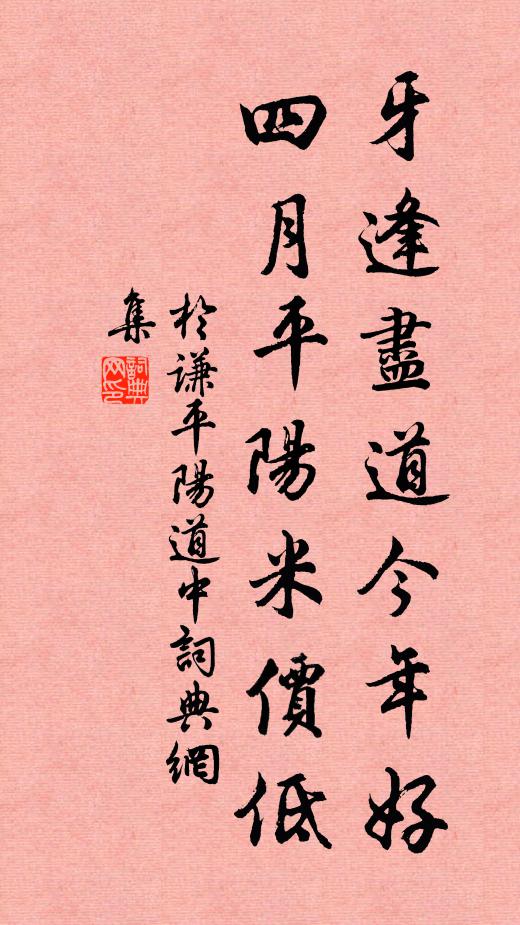 牙逢盡道今年好
四月平陽米價低
於謙平陽道中詞典網
集
詞典網印